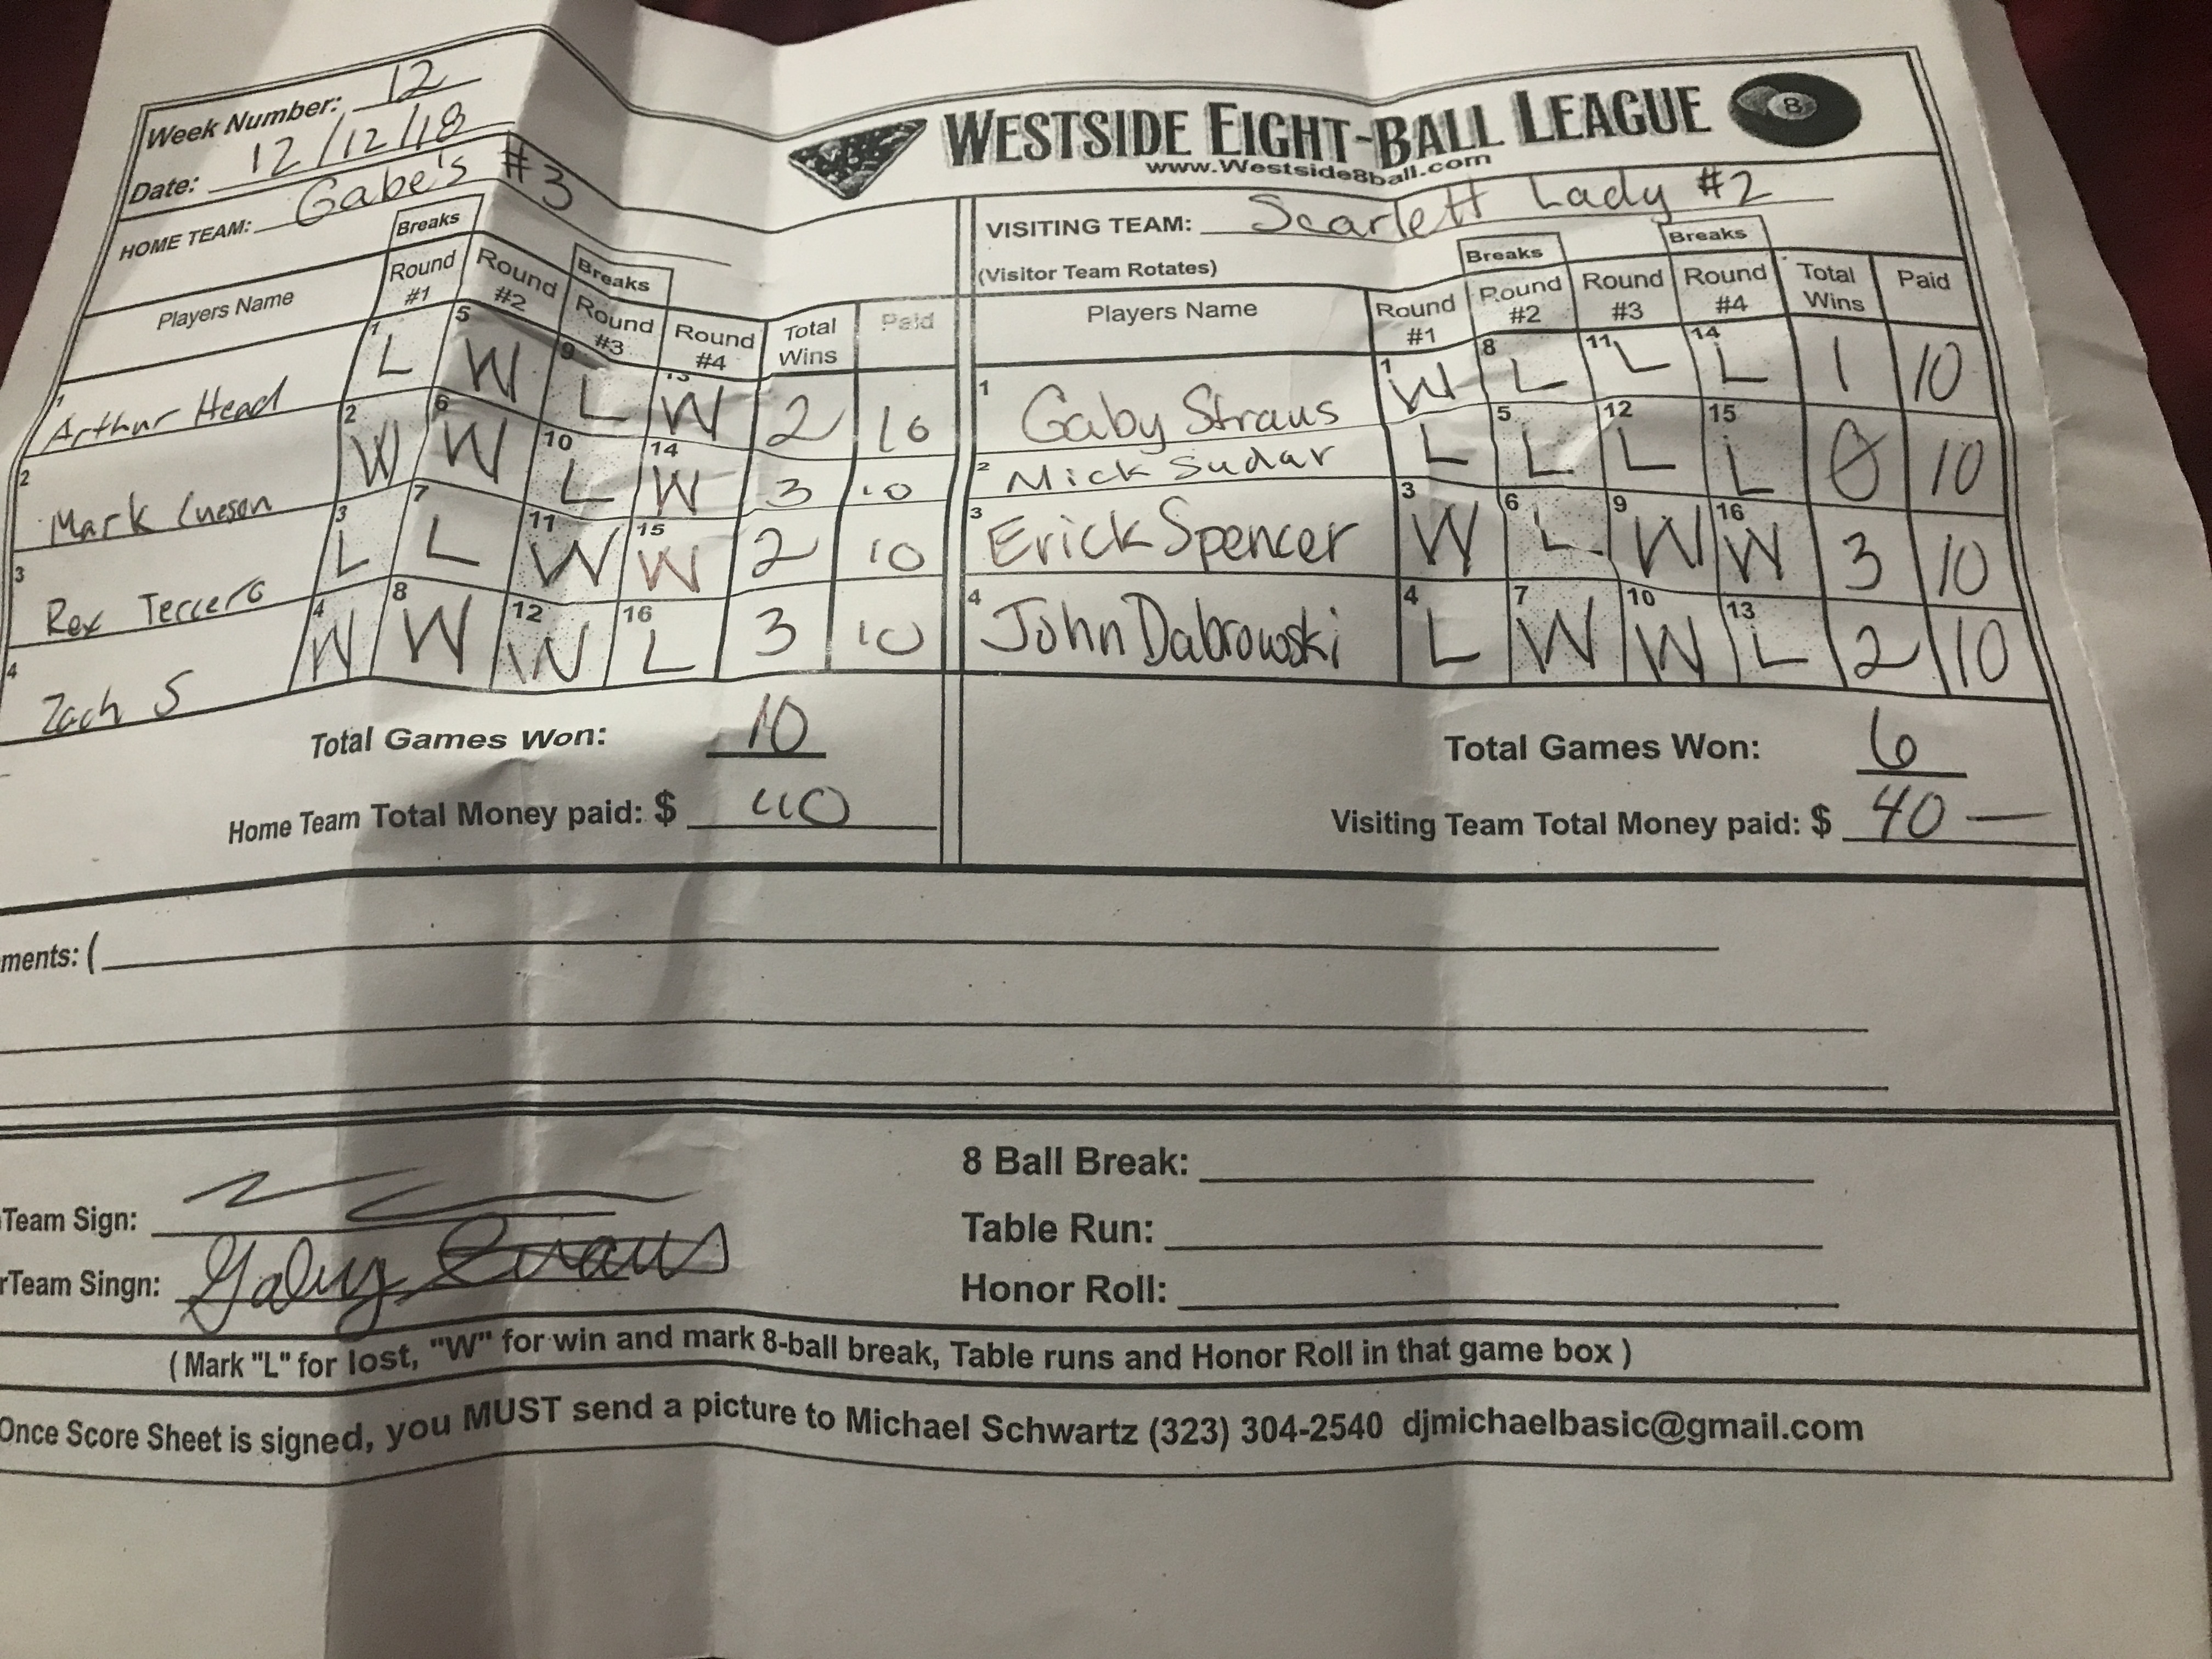 Week Number: 12
Date: 12/12/18
HOME TEAM: Gabe's #3
WESTSIDE EIGHT-BALL LEAGUE
8
www.Westside8ball.com
VISITING TEAM: Scarlett Lady #2
(Visitor Team Rotates)
Breaks Breaks
Players Name Round #1 Round #2 Round #3 Round #4 Total Wins Paid
1 Arthur Head 1 L 5 W 9 L 13 W 2 10
2 Mark 2 W 6 W 10 L 14 W 3 10
3 Rex Tercero 3 L 7 L 11 W 15 W 2 10
4 Zach S 4 W 8 W 12 W 16 L 3 10
Total Games Won: 10
Home Team Total Money paid: $ 40
Breaks Breaks
Players Name Round #1 Round #2 Round #3 Round #4 Total Wins Paid
1 Gaby Straus 1 W 8 L 11 L 14 L 1 10
2 Mick Sudar L 5 L 12 L 15 L 0 10
3 Erick Spencer 3 W 6 L 9 W 16 W 3 10
4 John Dabrowski 4 L 7 W 10 W 13 L 2 10
Total Games Won: 6
Visiting Team Total Money paid: $ 40 —
ments: (
Team Sign:
rTeam Singn: Gaby Straus
8 Ball Break:
Table Run:
Honor Roll:
( Mark "L" for lost, "W" for win and mark 8-ball break, Table runs and Honor Roll in that game box )
Once Score Sheet is signed, you MUST send a picture to Michael Schwartz (323) 304-2540 djmichaelbasic@gmail.com